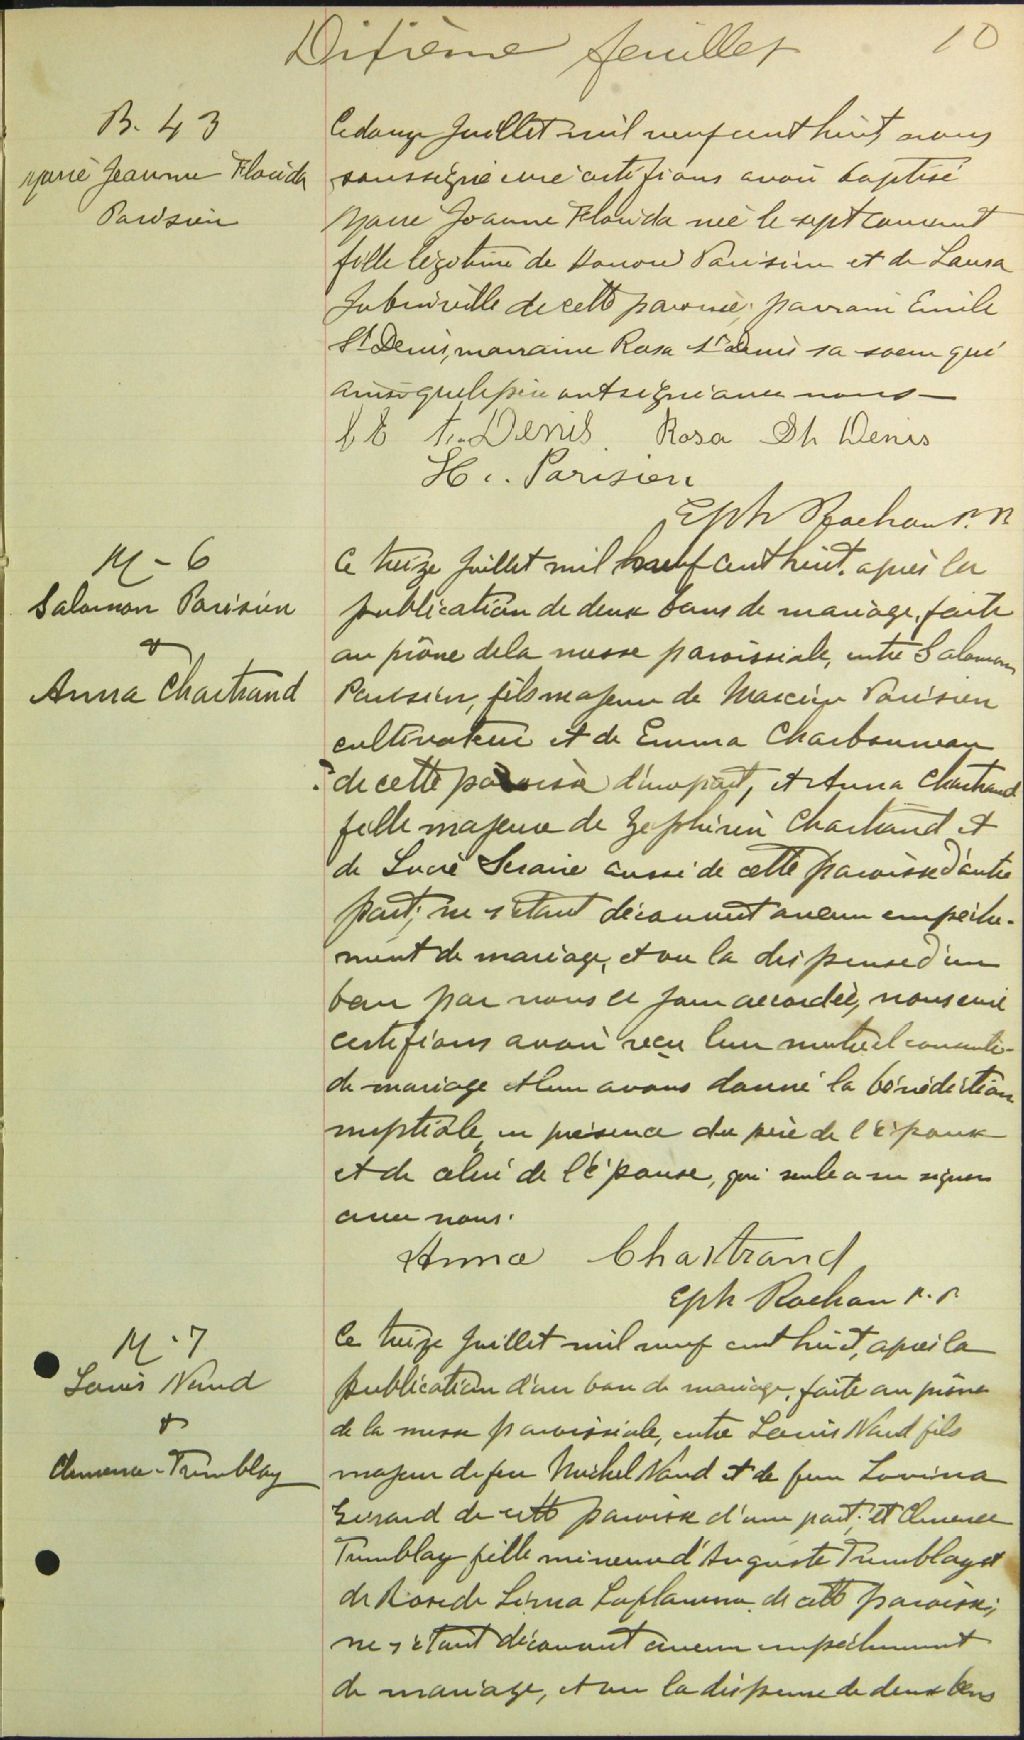 Dixième feuillet 10
B. 43
Marie Jeanne Florida
Parisien
Le douze Juillet mil neuf cent huit nous
soussigné curé certifions avoir baptisé
Marie Jeanne Florida née le sept courant
fille légitime de Honoré Parisien et de Laura
Jubinville de cette paroisse; parrain Emile
St Denis, marraine Rosa St Denis sa soeur qui
ainsi que le père ont signé avec nous —
E St. Denis Rosa St Denis
H. Parisien
Eph Rochon
M - 6
Salomon Parisien
&
Anna Chartrand
Ce treize Juillet mil neuf cent huit, après la
publication de deux bans de mariage, faite
au prône de la messe paroissiale, entre Salomon
Parisien, fils majeur de Parisien
cultivateur et de Emma Charbonneau
de cette paroisse d'une part, et Anna Chartrand
fille majeure de Zephirin Chartrand et
de aussi de cette paroisse d'autre
part; ne s'étant découvert aucun empêche-
ment de mariage, et vu la dispense d'un
ban par nous ce jour accordée, nous curé
certifions avoir reçu leur mutuel consente-
de mariage et leur avons donné la bénédiction
nuptiale, en présence du père de l'époux
et de celui de l'épouse, qui seule a su signer
avec nous.
Anna Chartrand
Eph Rochon
M - 7
Louis Naud
&
Clemence Tremblay
Ce treize Juillet mil neuf cent huit, après la
publication d'un ban de mariage, faite au prône
de la messe paroissiale, entre Louis Naud fils
majeur de feu Michel Naud et de feue Lovina
de cette paroisse d'une part; et Clemence
Tremblay fille mineure d'Auguste Tremblay et
de Rose de Lima Laflamme de cette paroisse;
ne s'étant découvert aucun empêchement
de mariage, et vu la dispense de deux bans